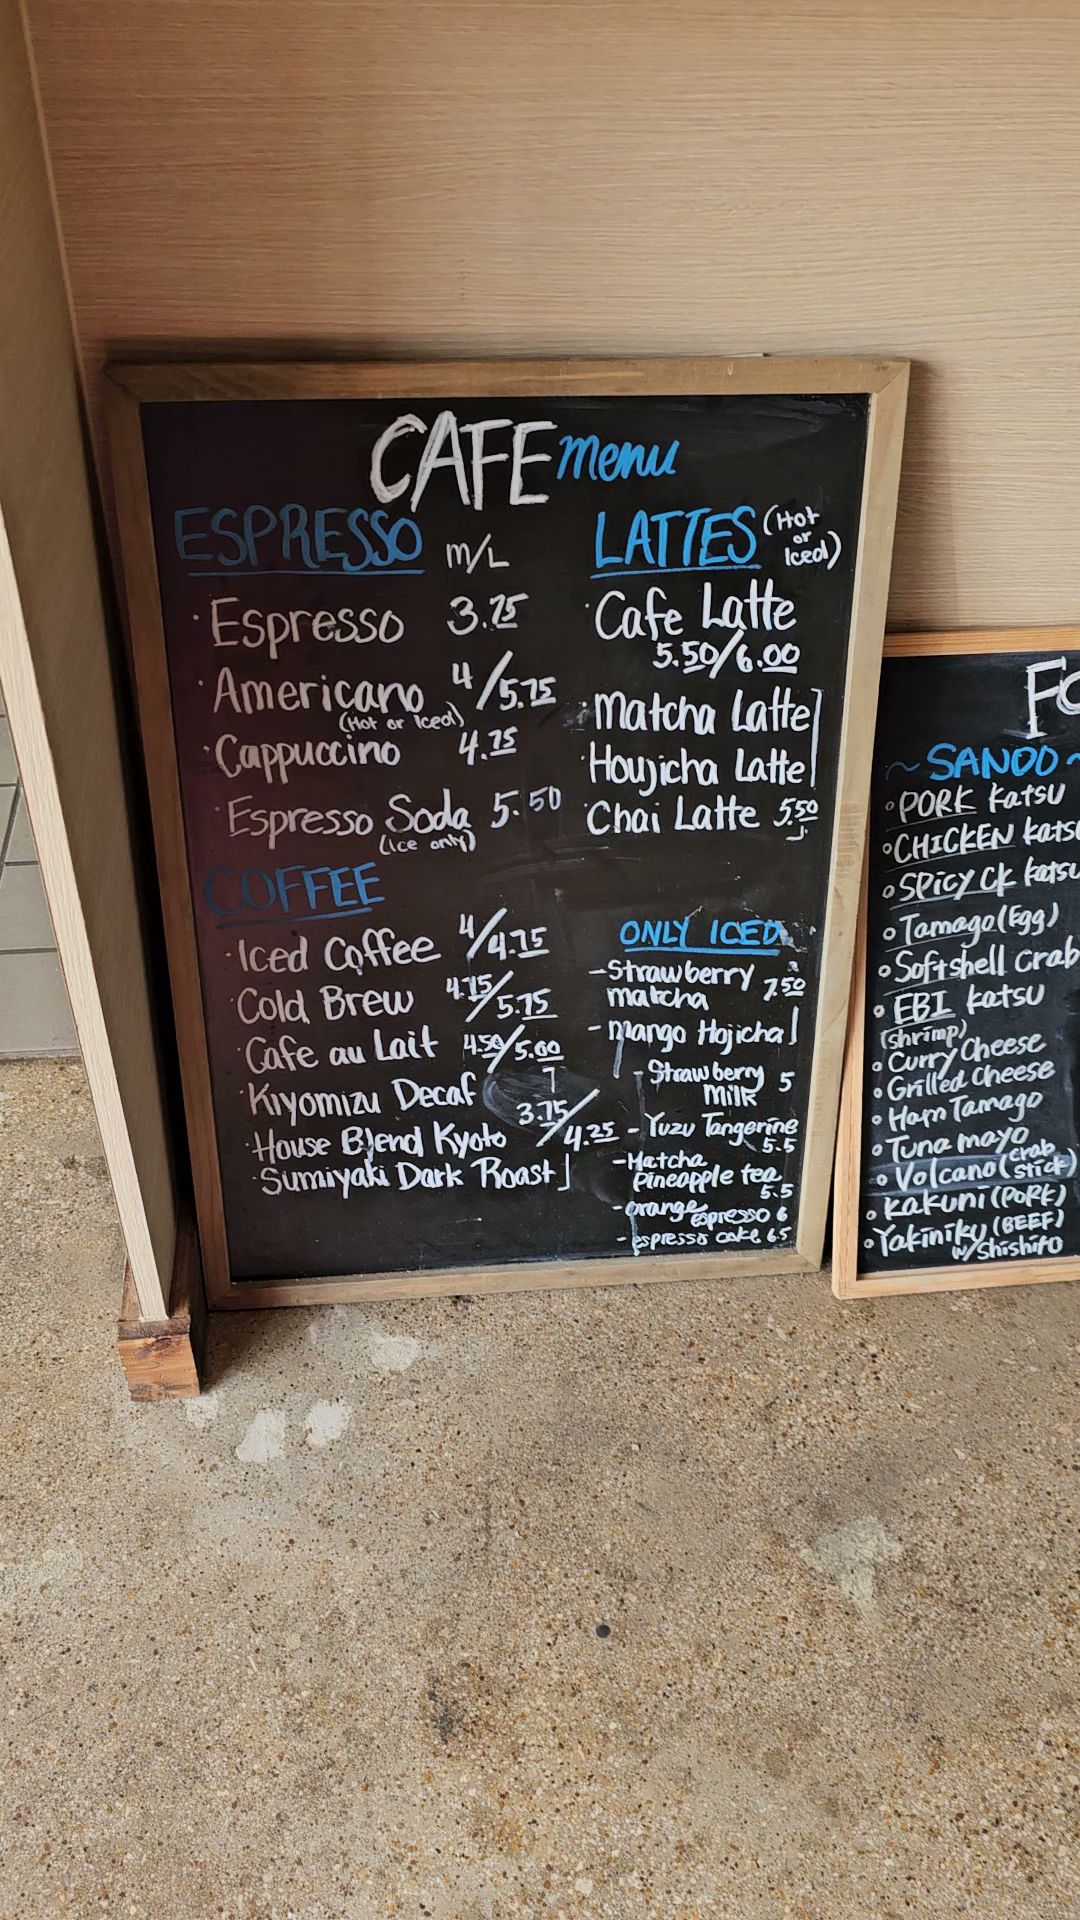 CAFE menu
ESPRESSO m/L
· Espresso 3.75
· Americano 4/5.75
(Hot or Iced)
· Cappuccino 4.75
· Espresso Soda 5.50
(Ice only)
COFFEE
· Iced Coffee 4/4.75
· Cold Brew 4.75/5.75
· Cafe au Lait 4.50/5.00
· Kiyomizu Decaf 7
· House Blend Kyoto 3.75/4.25
· Sumiyaki Dark Roast
LATTES (Hot
or
Iced)
· Cafe Latte
5.50/6.00
· Matcha Latte
· Houjicha Latte
· Chai Latte 5.50
ONLY ICED
- Strawberry 7.50
matcha
- mango Hojicha
- Strawberry 5
Milk
- Yuzu Tangerine
5.5
- Matcha
Pineapple tea
5.5
- orange espresso 6
- espresso coke 6.5
Fo
~ SANDO ~
° PORK Katsu
° CHICKEN Katsu
° SPICY CK Katsu
° Tamago (Egg)
° Softshell crab
° EBI Katsu
(shrimp)
° Curry Cheese
° Grilled Cheese
° Ham Tamago
° Tuna mayo
° Volcano (crab
stick)
° Kakuni (PORK)
° Yakiniku (BEEF)
w/ Shishito